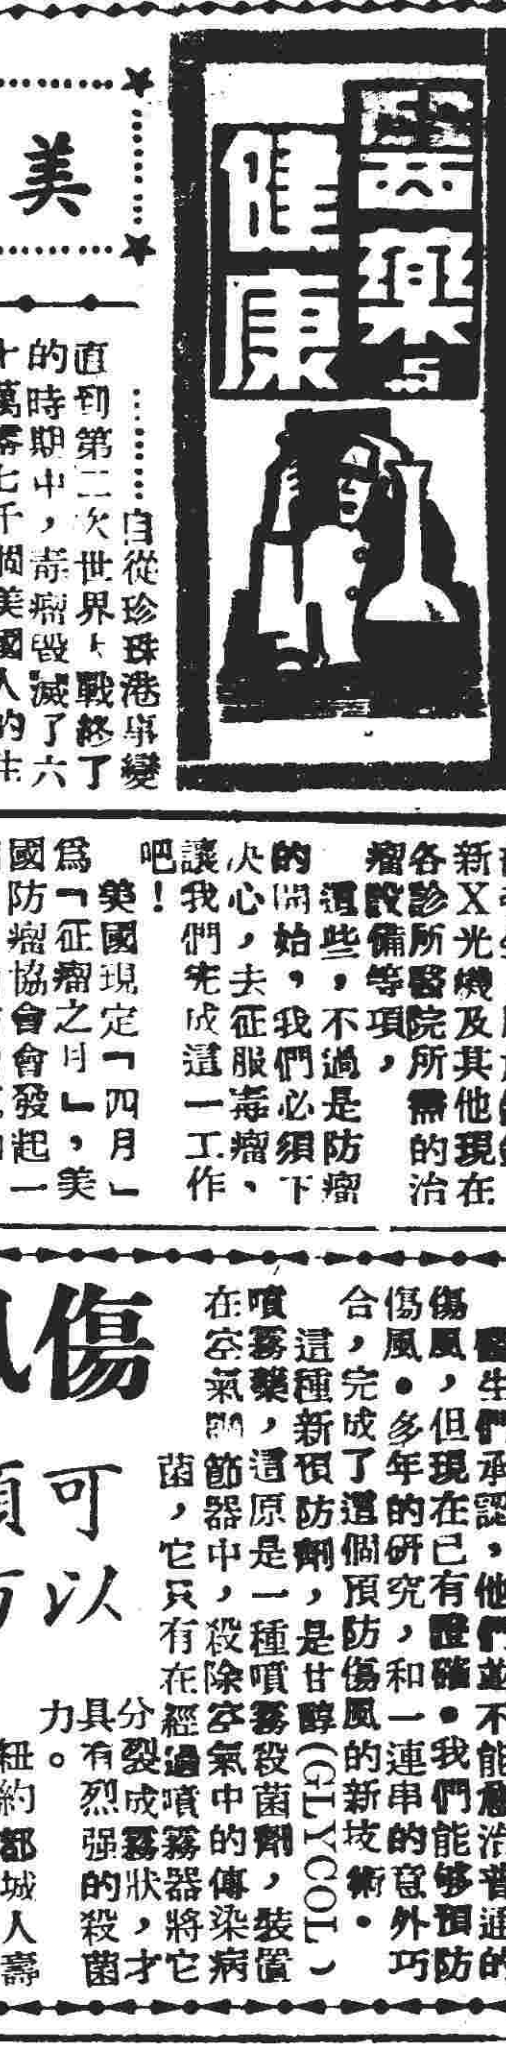 醫藥與
健康
美
自從珍珠港事變
直到第二次世界大戰終了
的時期中，毒瘤毀滅了六
十萬零七千個美國人的生
新X光機及其他現在
各診所醫院所需的治
瘤設備等項，
這些，不過是防瘤
的開始，我們必須下
決心，去征服毒瘤、
讓我們完成這一工作
吧！
美國現定「四月」
為「征瘤之月」，美
國防瘤協會會發起一
傷
可
以
醫生們承認，他們並不能愈治普通的
傷風，但現在已有證確。我們能够預防
傷風。多年的研究，和一連串的意外巧
合，完成了這個預防傷風的新技術。
這種新預防劑，是甘醇（GLYCOL）
噴霧藥，這原是一種噴霧殺菌劑，裝置
在空氣調節器中，殺除空氣中的傳染病
菌，它只有在經過噴霧器將它
分裂成霧狀，才
具有烈强的殺菌
力。
紐約都城人壽